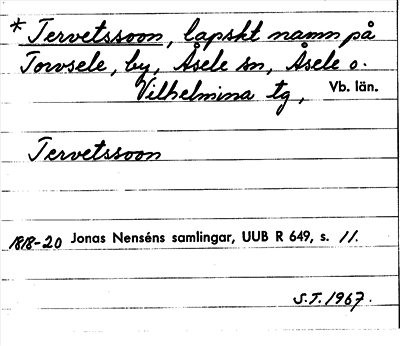 * Tervetssoon, lapskt namn på
Torvsele, by, Åsele sn, Åsele o.
Vilhelmina tg, Vb. län.
Tervetssoon
1818-20 Jonas Nenséns samlingar, UUB R 649, s. 11.
S.T. 1967.